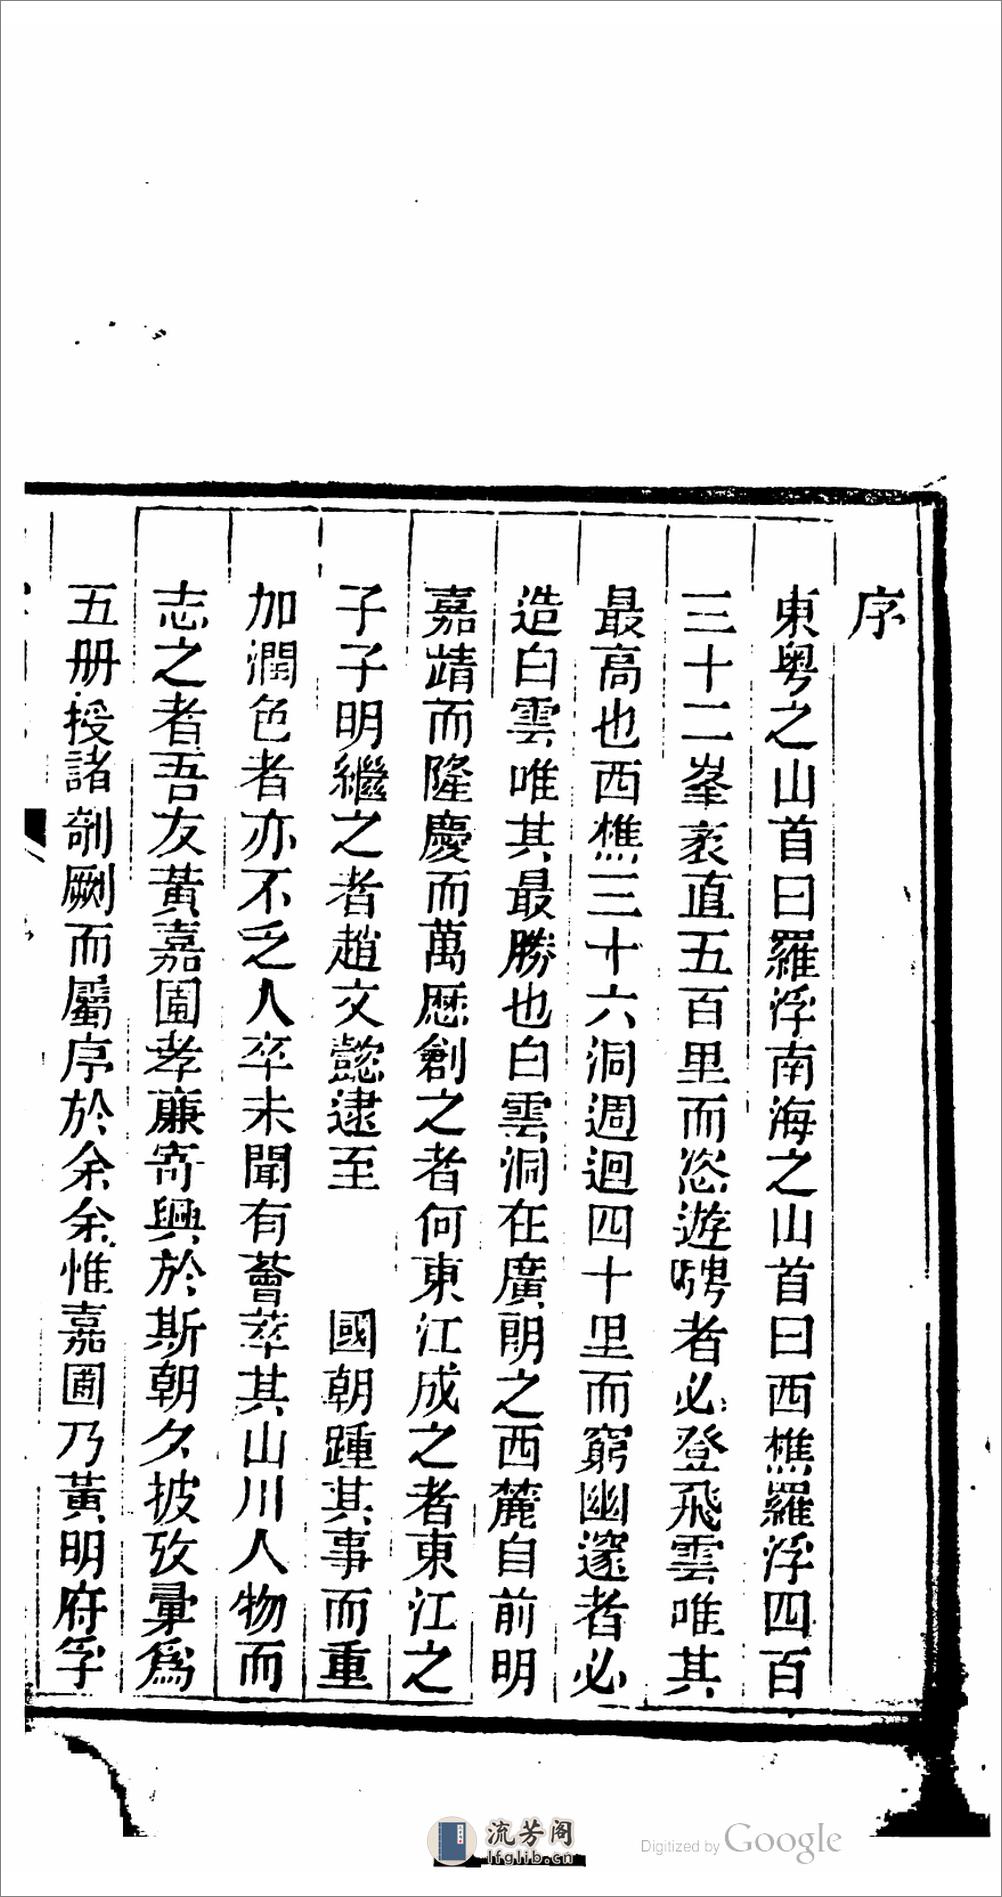 序
東粤之山首曰羅浮南海之山首曰西樵羅浮四百
三十二峯袤直五百里而恣遊聘者必登飛雲唯其
最高也西樵三十六洞週迴四十里而窮幽邃者必
造白雲唯其最勝也白雲洞在廣朗之西麓自前明
嘉靖而隆慶而萬厯創之者何東江成之者東江之
子子明繼之者趙文懿逮至 國朝踵其事而重
加潤色者亦不乏人卒未聞有薈萃其山川人物而
志之者吾友黃嘉圃孝廉寄興於斯朝夕披攷彚爲
五册授諸剞劂而屬序於余余惟嘉圃乃黃明府孚
流芳阁
lfglib.cn
Digitized by Google